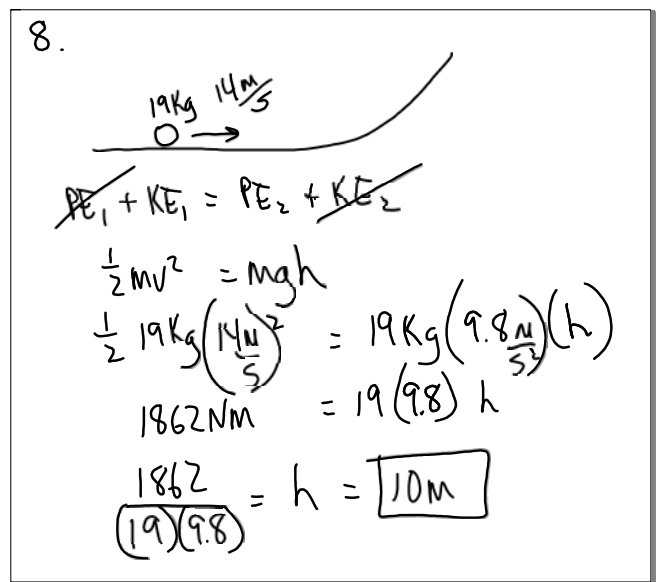 8.
19Kg 14 M/S
PE₁ + KE₁ = PE₂ + KE₂
1/2 mv² = mgh
1/2 19Kg(14 M/S)² = 19Kg(9.8 M/S²)(h)
1862NM = 19(9.8) h
1862/(19)(9.8) = h = 10M